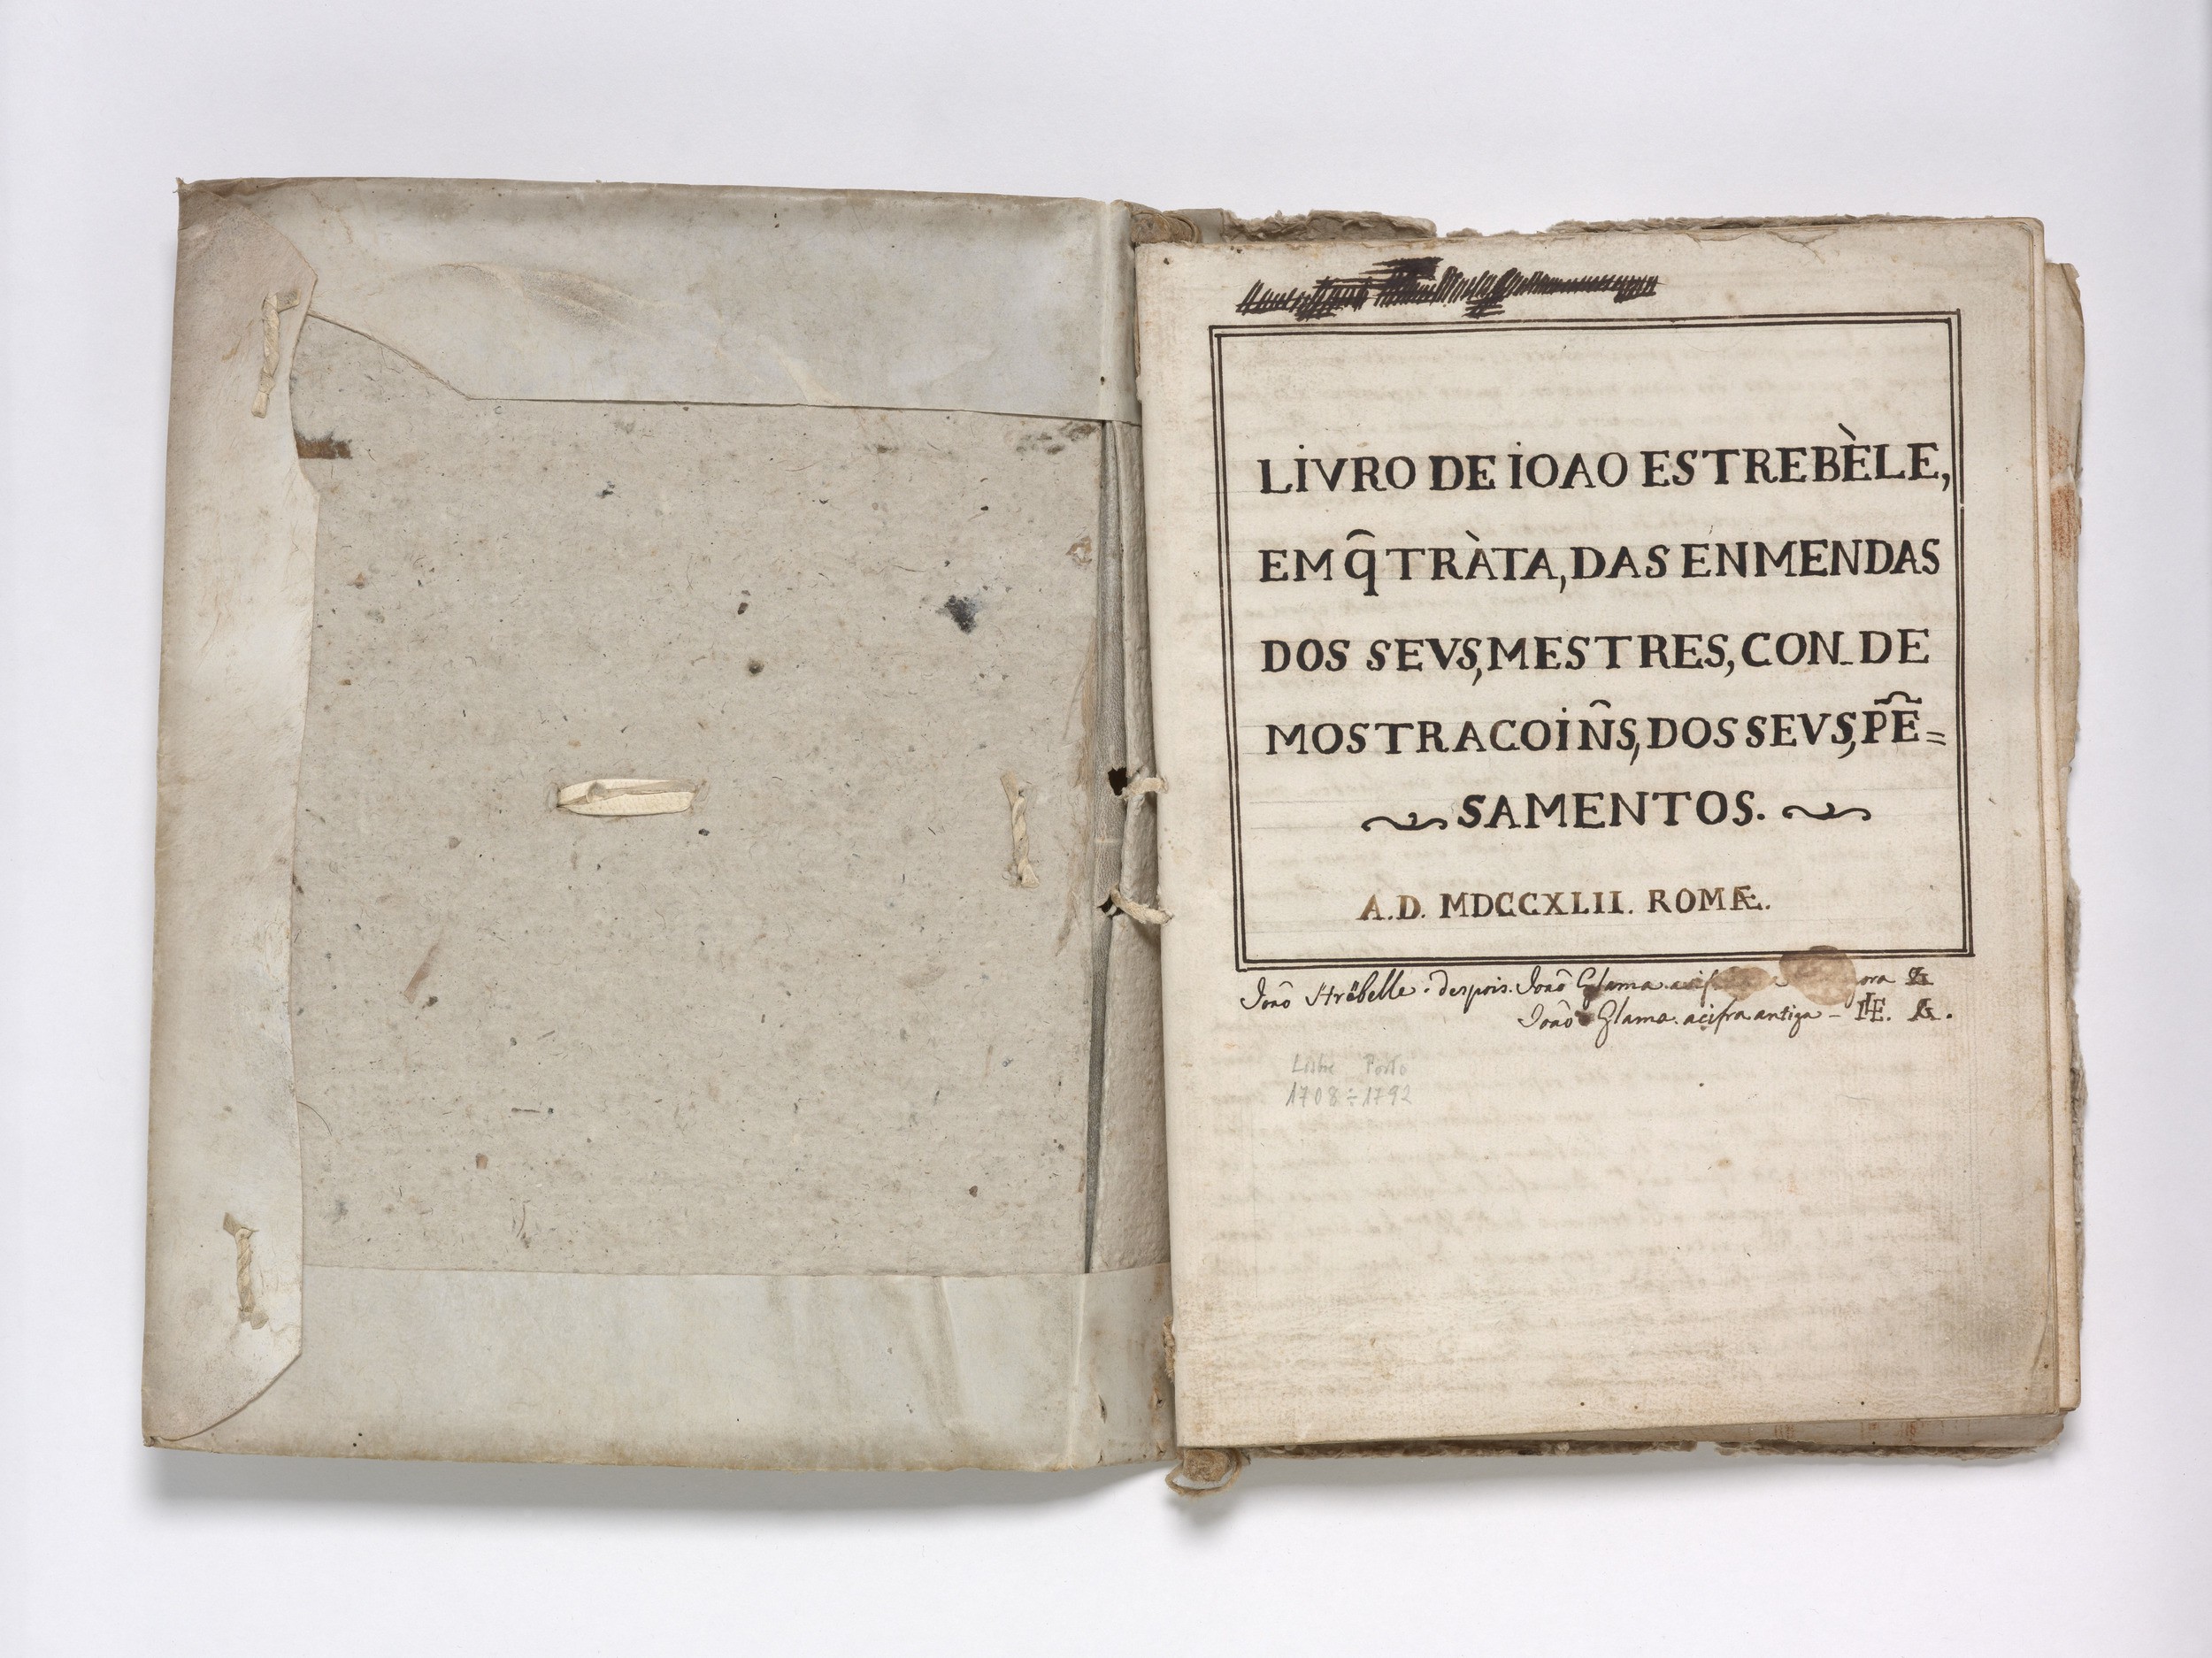 LIVRO DE IOAO ESTREBÈLE,
EM q̂ TRÀTA, DAS ENMENDAS
DOS SEVS, MESTRES, CON_DE
MOSTRACOIÑS, DOS SEVS, PẼ=
SAMENTOS.
A.D. MDCCXLII. ROMÆ.
Joaõ Strëbelle. despois. Joaõ Glama. ora
Joaõ Glama. acifra antiga - IE. G.
Lisbe Porto
1708÷1792